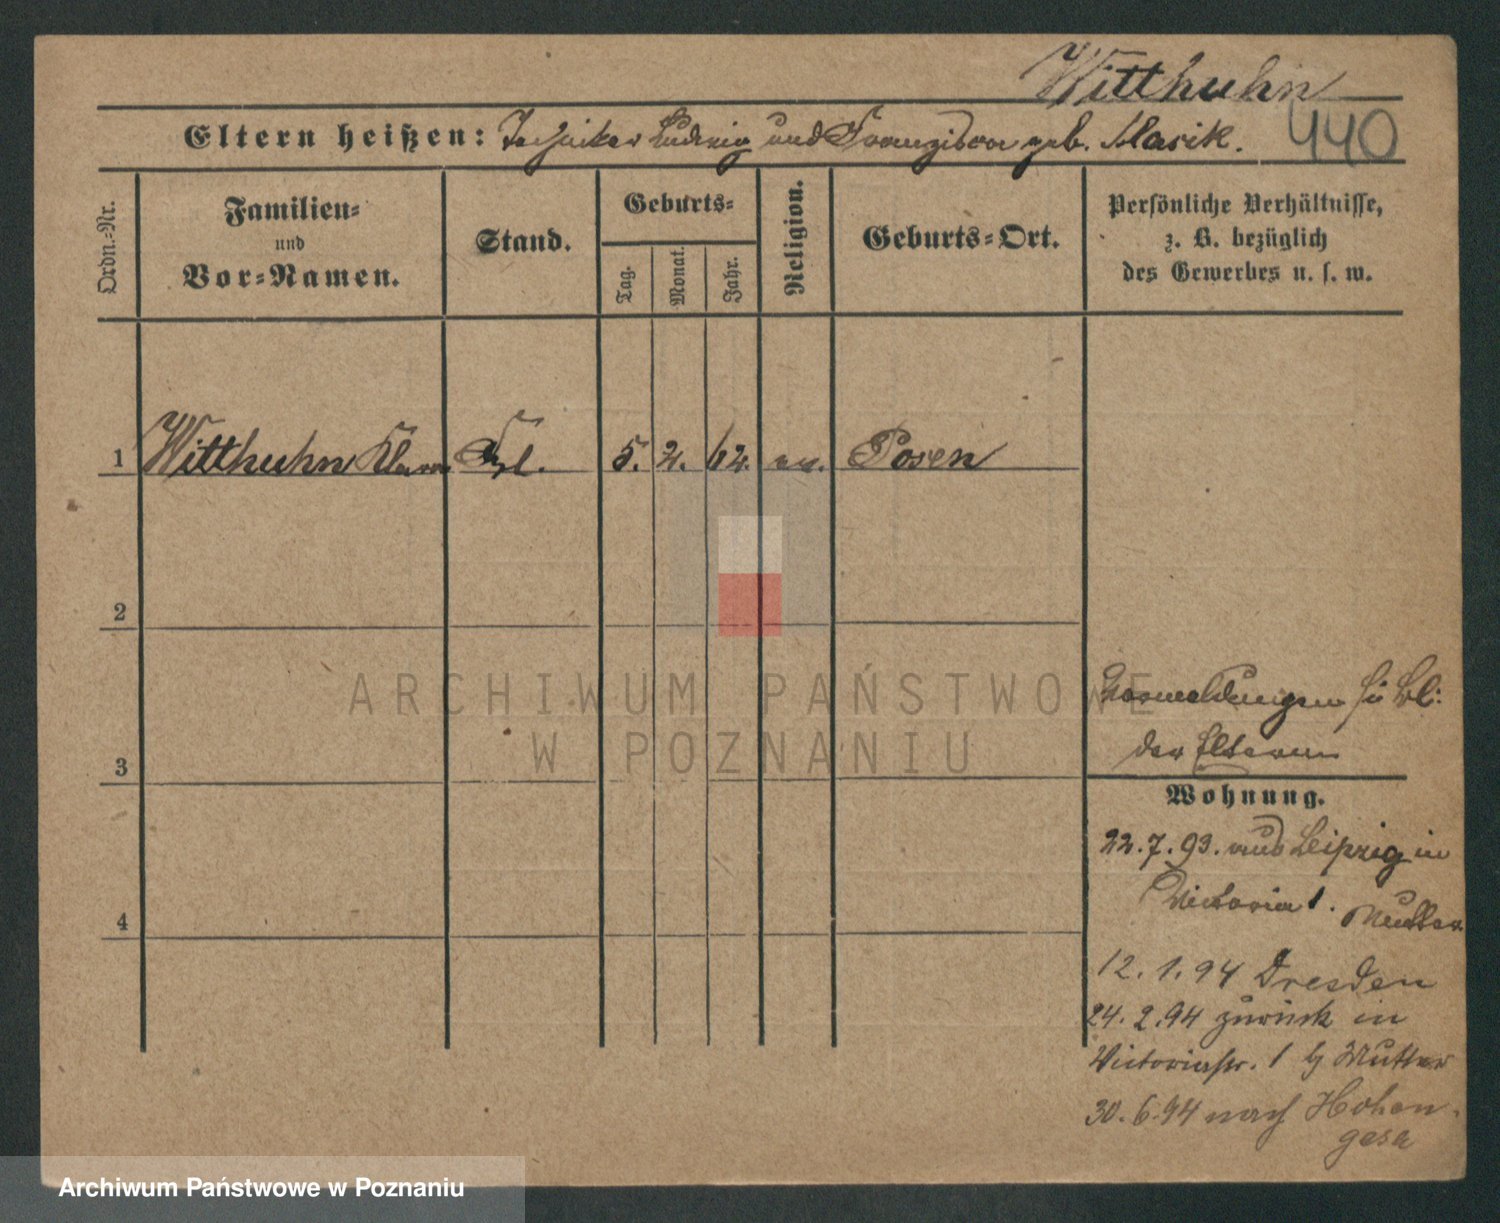 Witthuhn
Eltern heißen: Techniker Ludwig und Franziska geb. Masik. 440
Ordn.-Nr.
Familien-
und
Vor-Namen.
Stand.
Geburts-
Tag.
Monat.
Jahr.
Religion.
Geburts-Ort.
Persönliche Verhältnisse,
z. B. bezüglich
des Gewerbes u. s. w.
1 Witthuhn Klara Frl. 5. 2. 62. ev. Posen
2
3
4
der Eltern
Wohnung.
22.7.93. aus Leipzig in
Victoria 1. Mutter
12.1.94 Dresden
24.2.94 zurück in
Victoriastr. 1 b Mutter
30.6.94 nach Hohen-
gesa
ARCHIWUM PAŃSTWOWE
W POZNANIU
Archiwum Państwowe w Poznaniu